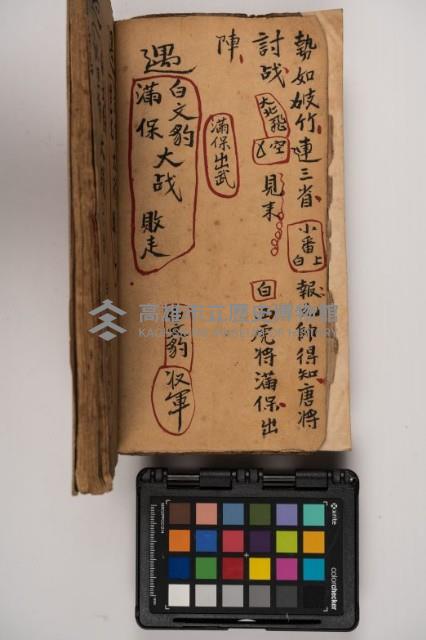 勢如破竹連三省 小番上白 報 帥得知唐將
討战 大北飛空 見来 白 虎將滿保出
陣 滿保出武
遇 白文豹 滿保 大战 敗走 白文豹 収軍
高雄市立歷史博物館
KAOHSIUNG MUSEUM OF HISTORY
x-rite
colorchecker